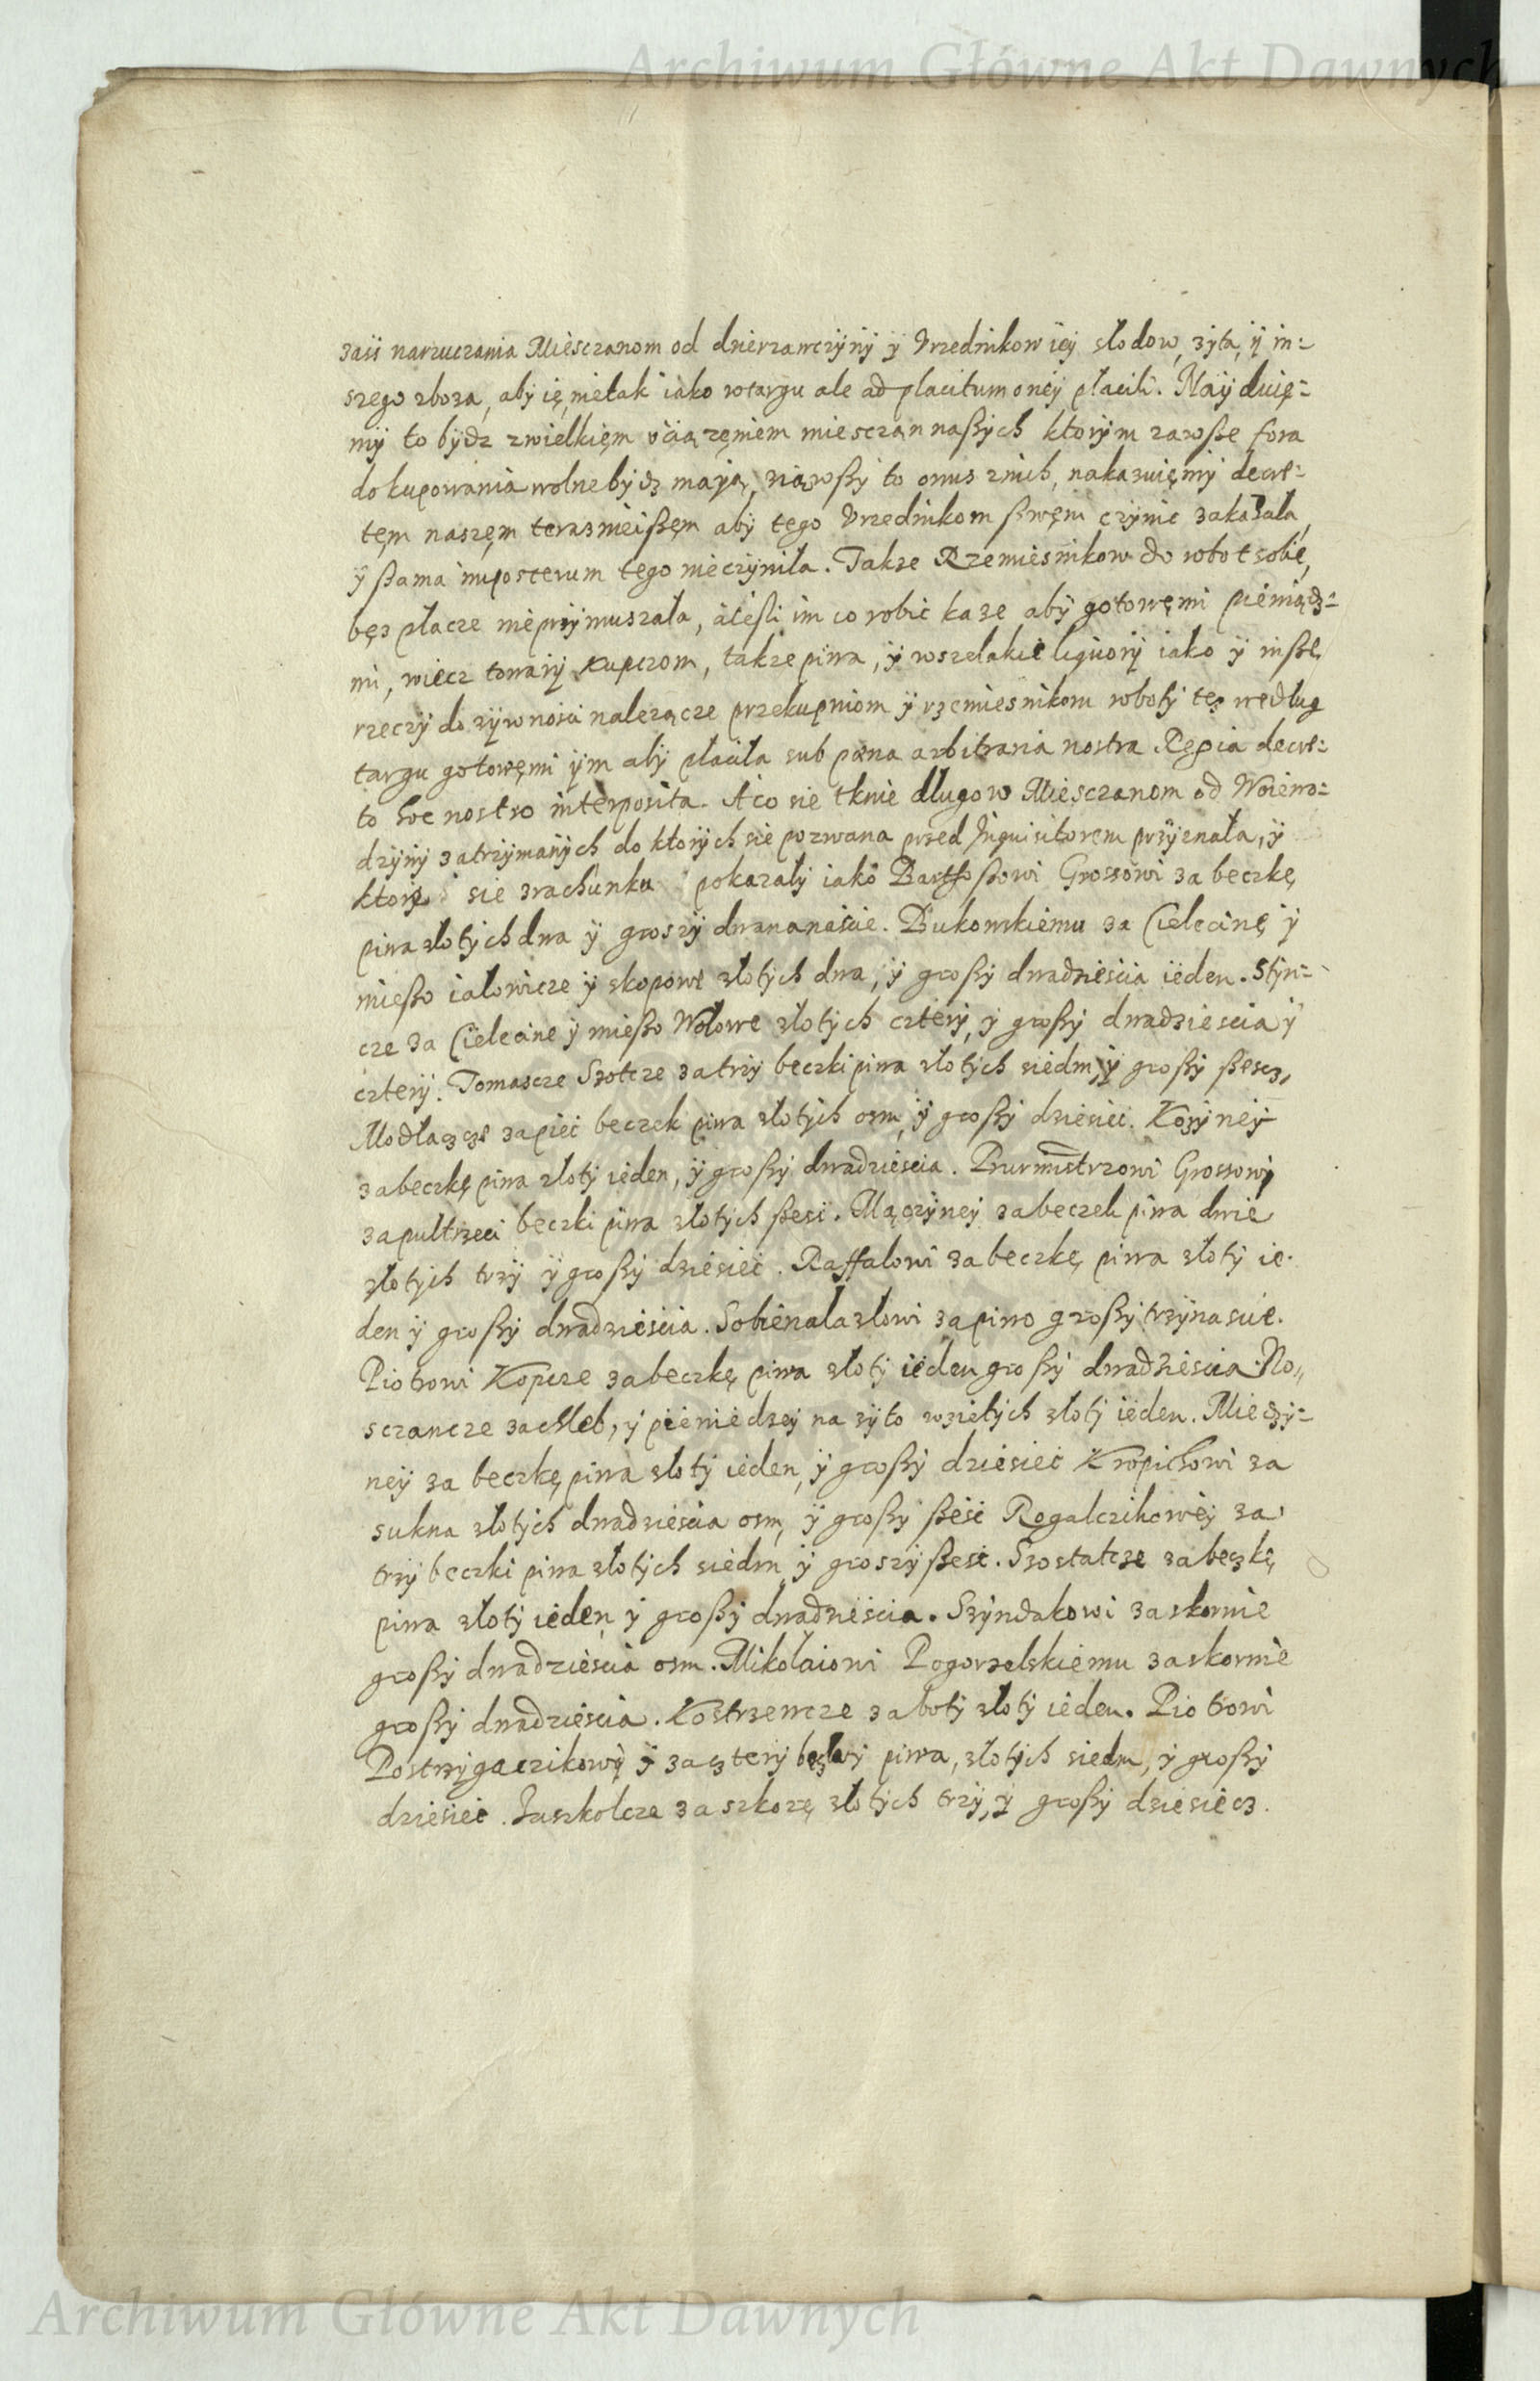 Archiwum Główne Akt Dawnych
zaś narzuczania Miesczanom od dzierzawczyny y Vrzednikow iey słodow, zyta, y in=
szego zboza, aby ię nietak iako w targu ale ad placitum oney płacili. Nayduię=
my to bydz z wielkięm vciązęniem miesczan naßych ktorym zawße fora
do kupowania wolne bydz maią, ziąwßy to onus znich, nakazuięmy decre=
tęm naszęm teraznieißęm aby tego Vrzednikom ßwęm czynic zakazała,
y ßama inposterum tego nieczyniła. Takze Rzemiesnikow do robot sobie,
bęz płacze nieprzymuszała, aießli im co robic kaze aby gotowęmi pieniądz=
mi, wiecz towary kupczom, takze piwa, y wszelakie liquory iako y inße
rzeczy do zywnosci nalezącze przekupniom y rzemiesnikom roboty tęz według
targu gotowęmi ym aby płaciła sub pæna arbitraria nostra Regia decre=
to hoc nostro interposita. A co sie tknie długow Miesczanom od Woiewo=
dzyny zatrzymanych do ktorych sie pozwana przed Inquisitorem przyznała, y
ktore sie z rachunku pokazały iako Barthoßowi Grossowi za beczkę
piwa złotych dwa y groszy dwananaście. Bukowskiemu za Cielecinę y
mießo iałowicze y skopowe złotych dwa, y großy dwadziescia ieden. Styn=
cze za Cielecine y mießo Wołowe złotych cztery, y großy dwadziescia y
cztery. Tomascze Szotcze za trzy beczki piwa złotych siedm, y großy ßescz,
Modłaczcze zapieć beczek piwa złotych osm, y großy dziesiec. Kozyney
za beczkę piwa złoty ieden, y großy dwadziescia. Burmistrzowi Grossowi
za pułtrzeci beczki piwa złotych ßesć. Mączyney za beczek piwa dwie
złotych trzy y großy dziesieć. Raffałowi za beczkę piwa złoty ie=
den y großy dwadziescia. Sobienalazłowi za piwo großy trzynascie.
Piotrowi Kopcze za beczkę piwa złoty ieden großy dwadziescia. No=
sczancze za chleb, y pieniedzey na zyto wzietych złoty ieden. Miedzy=
ney za beczkę piwa złoty ieden, y großy dziesieć Kropichowi za
sukna złotych dwadziescia osm, y großy ßesć Rogalczikowey za
trzy beczki piwa złotych siedm, y groszy ßesć. Szostatcze za beczkę
piwa złoty ieden y großy dwadziescia. Szyndakowi za skornie
großy dwadziescia osm. Mikołaiowi Pogorzelskiemu za skornie
großy dwadziescia. Kostrzewcze za boty złoty ieden. Piotrowi
Postrzygaczikowi y za cztery piwa, złotych siedm, y großy
dziesieć. Juszkolcze za szkorę złotych trzy, y großy dziesiecz.
Archiwum Główne Akt Dawnych